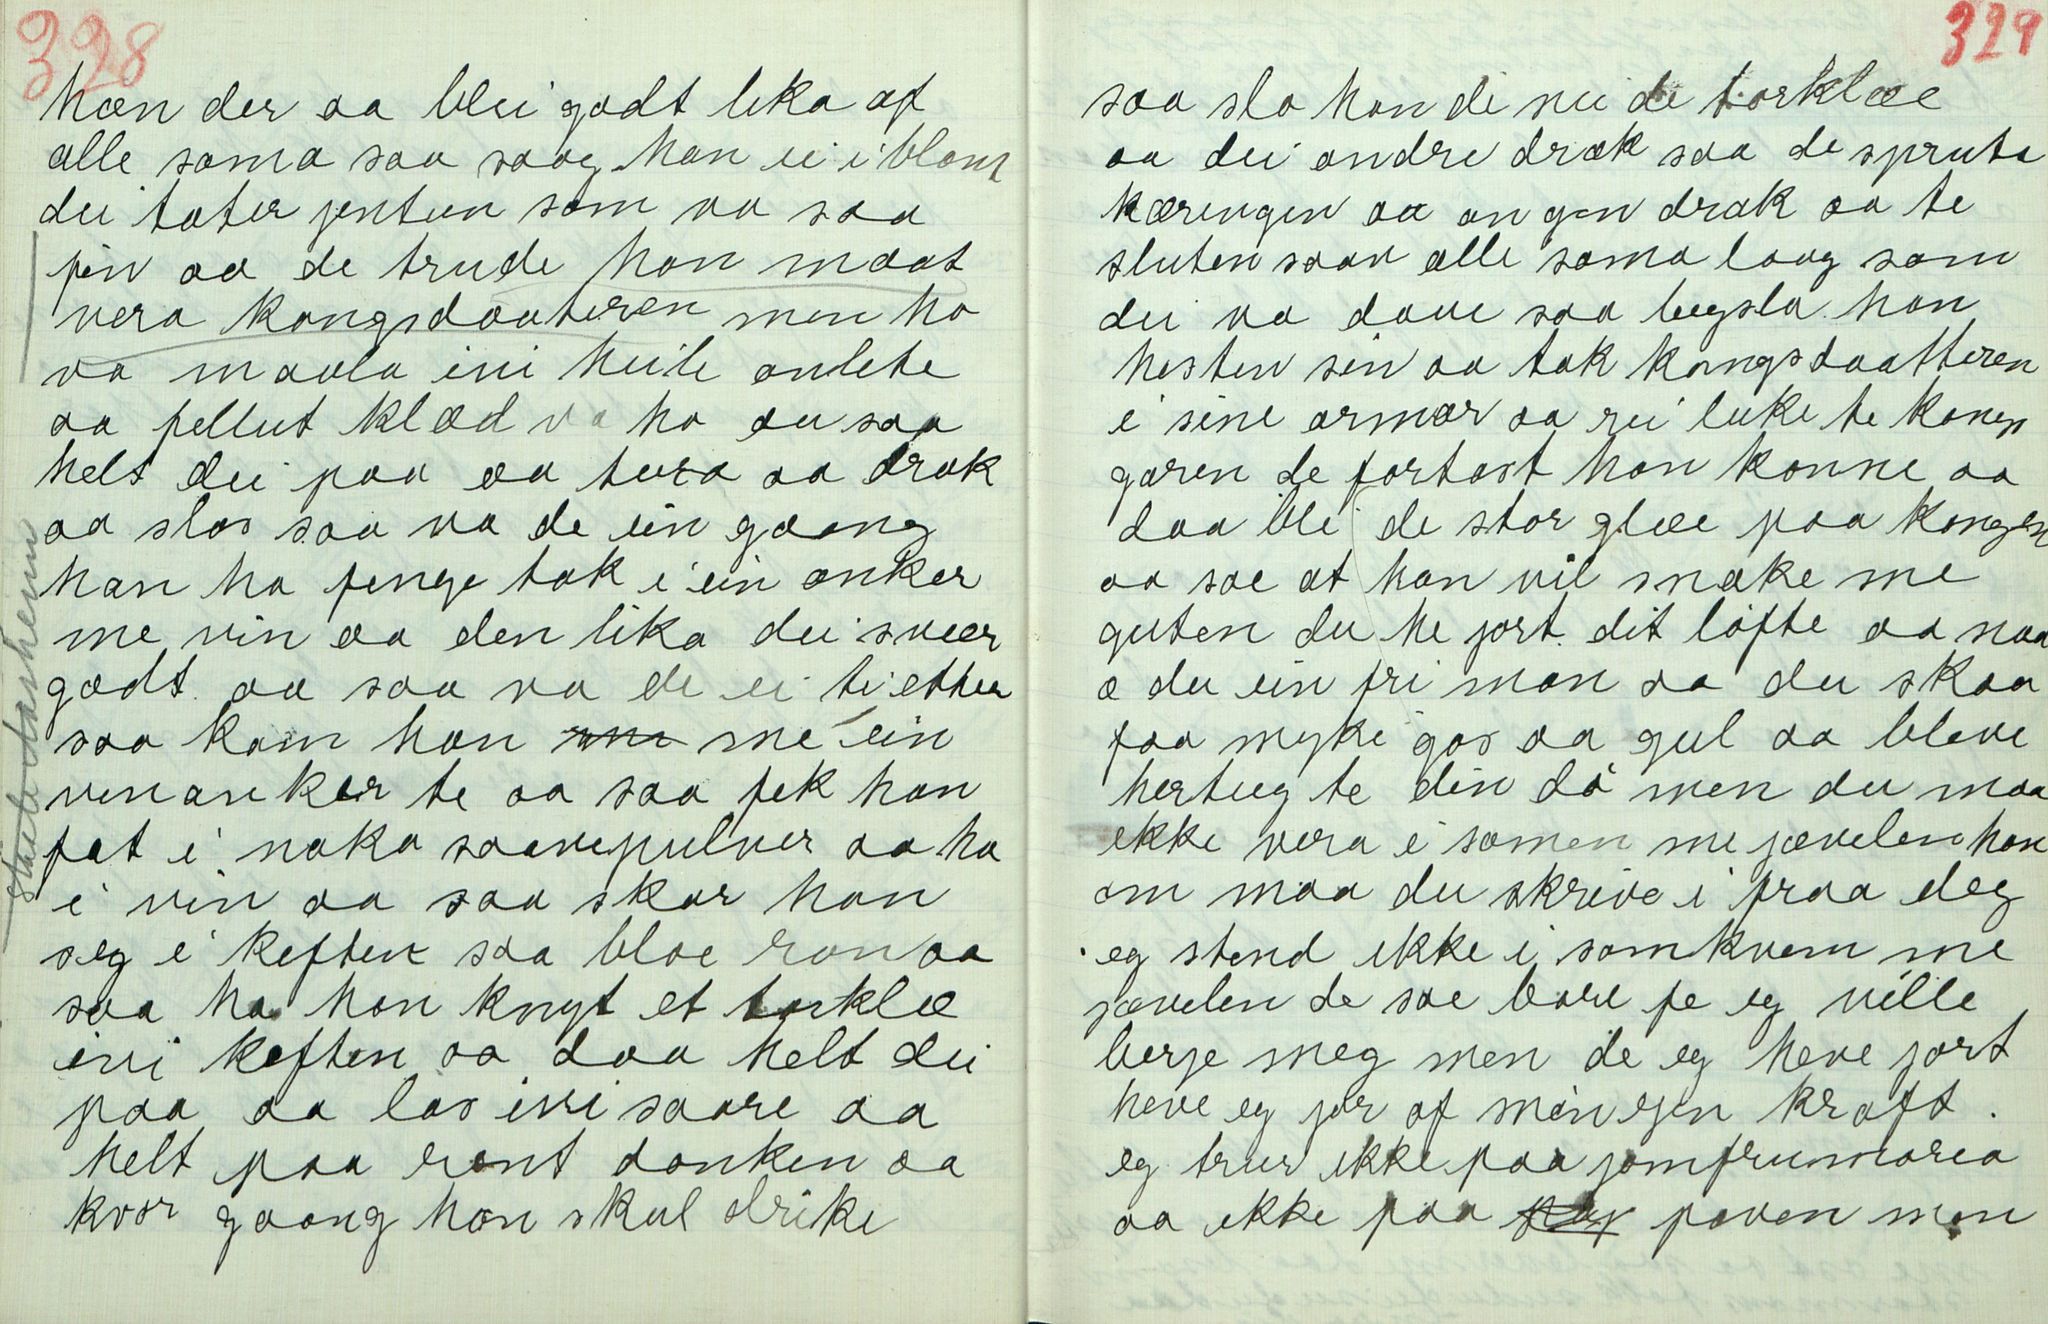 328
han der aa blei godt lika af
alle sama saa saag han ei i blant
dei tater jentun som va saa
fin aa de trude han maat
vera kongsdaateren men ho
va maala ivi heile anlete
aa fellut klæd va ho au saa
helt dei paa aa tura aa drak
aa slos saa va de ein gaang
han ha fenge tak i ein anker
me vin aa den lika dei svær
godt aa saa va de ei ti etter
saa kom han me ein
vinanker te aa saa fek han
fat i noko saavepulver aa ha
i vin aa saa skar han
seg i keften saa bloe ran aa
saa ha han knyt et torklæ
ivi keften aa daa helt dei
paa aa las ivi saare aa
helt paa rent danken aa
kvar gaang han skul drike
329
saa slo han di nei de torklæe
aa dei andre drak saa de spruta
kæringen aa ongen drak aa te
sluten saav alle sama laag som
dei va daue saa beysla han
hesten sin aa tok kongsdaatteren
i sine armar aa rei luke te kongs
garen de fortast han konne aa
daa blei de stor glæe paa kongen
aa sae at han vil snake me
guten du he jort dit løfte aa naa
æ du ein fri man aa du skaa
faa myke gos aa gul aa bleve
hertug te din dø men du maa
ikke vera i samen me jævelen han
om maa du skrive i fraa deg
eg stend ikke i samkvem me
jævelen de sae bare fe eg ville
berje meg men de eg heve jort
heve eg jor af min ejen kraft.
eg trur ikke paa jomfrumaria
aa ikke paa paven men